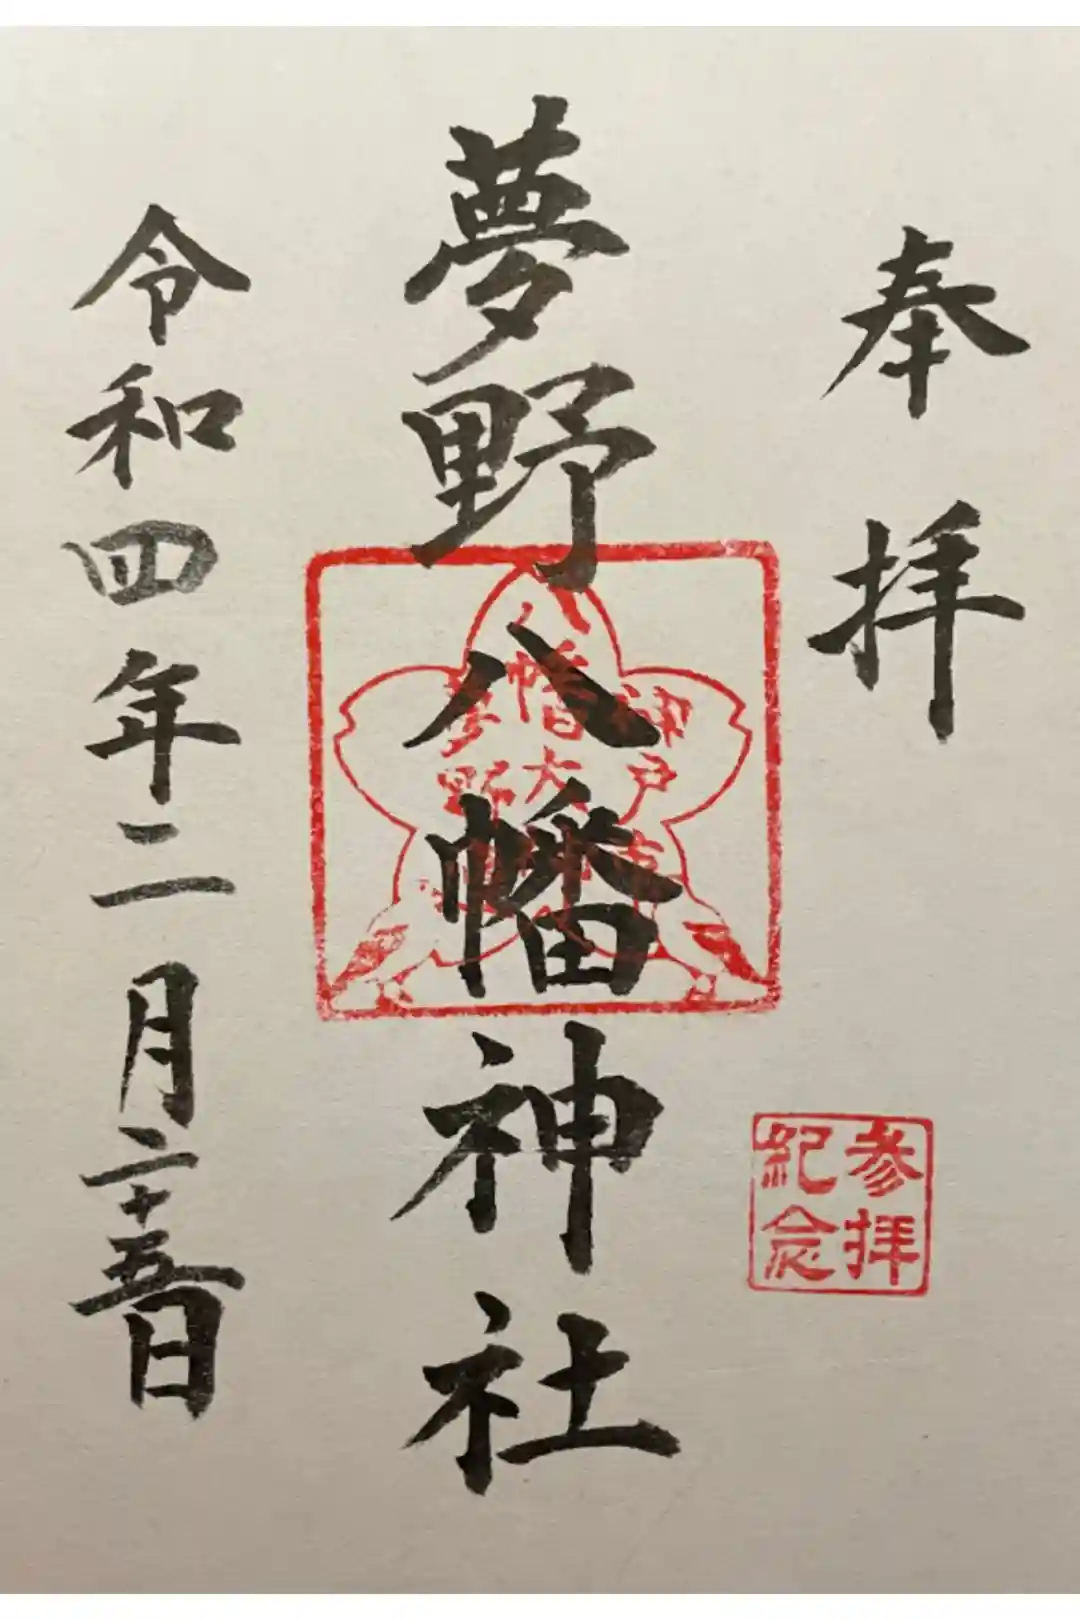 奉拝
夢野八幡神社
神戸市
八幡大
夢野
参拝
紀念
令和四年二月二十五日